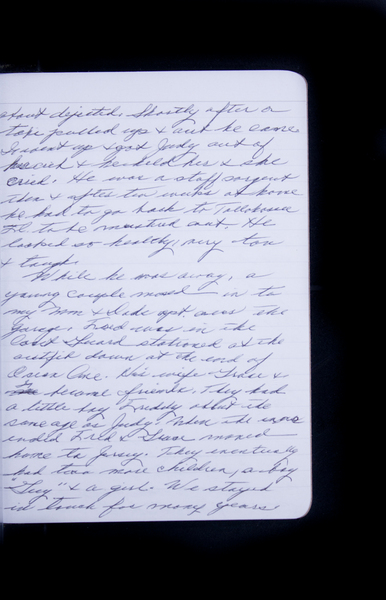 about dejected. Shortly after a
taxi pulled up & out he came
I went up & got Judy out of
her crib & he held her & she
cried. He was a staff sargent
then & after two weeks at home
he had to go back to Tallahassee
Fl. to be mustered out. He
looked so healthy, very tan
& tough.
While he was away, a
young couple moved in to
my Mom & Dads apt over the
Garage. Fred was in the
Coast Guard stationed at the
outfit down at the end of
Ocean Ave. His wife Grace &
I became friends. They had
a little boy Freddy about the
same age as Judy. When the war
ended Fred & Grace moved
home to Jersey. They eventually
had two more children, a boy
"Guy" & a girl. We stayed
in touch for many years